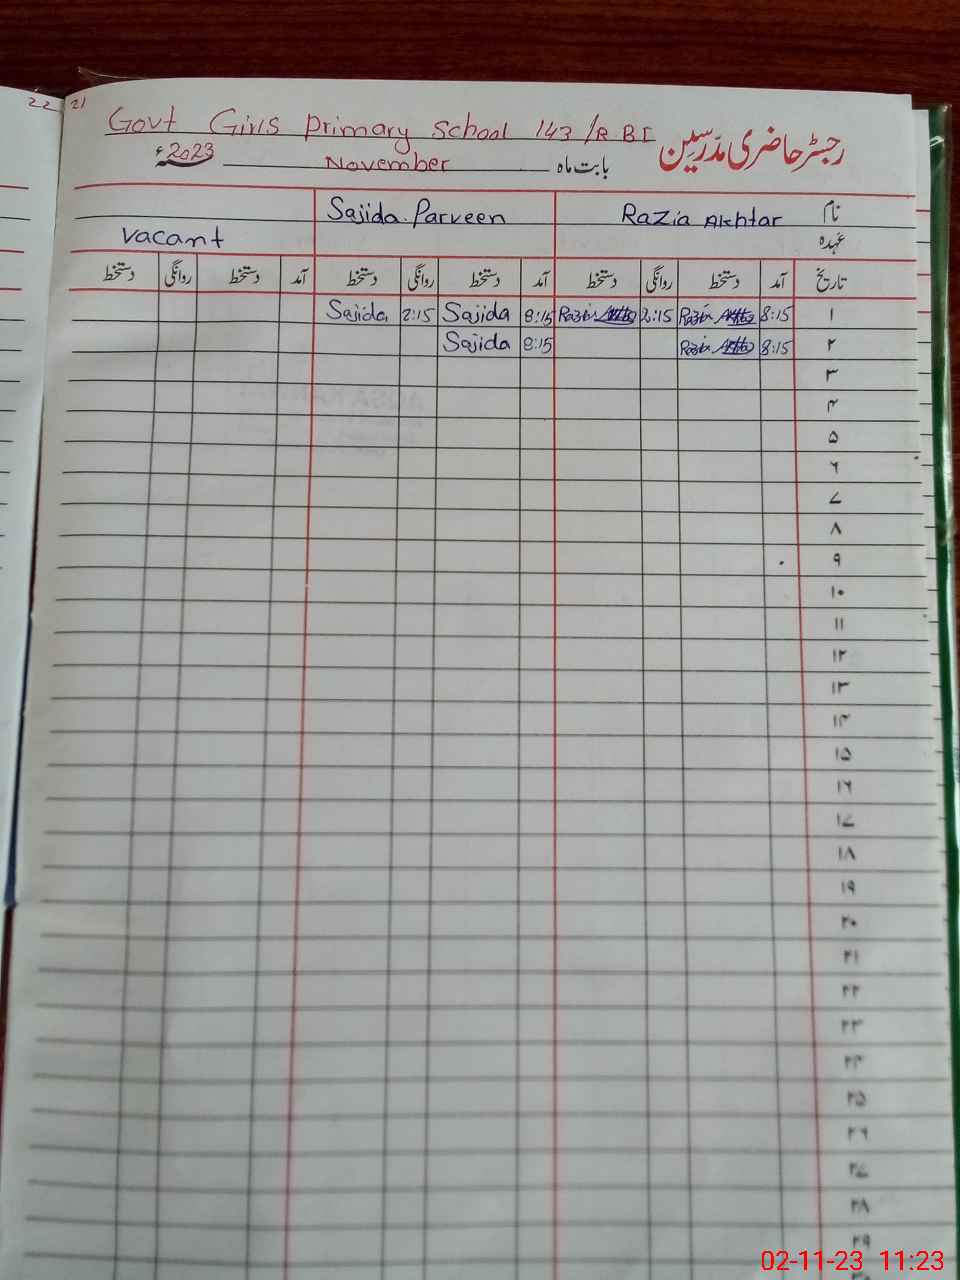 22 21
Govt Girls primary school 143/RBI
رجسٹر حاضری مدرسین
بابت ماہ November 2023ء
نام Razia Akhtar Sajida Parveen
عہدہ vacant
تاریخ آمد دستخط روانگی دستخط آمد دستخط روانگی دستخط آمد دستخط روانگی دستخط
۱ 8:15 Razia Akhtar 2:15 Razia Akhtar 8:15 Sajida 2:15 Sajida
۲ 8:15 Razia Akhtar 8:15 Sajida
۳
۴
۵
۶
۷
۸
۹
۱۰
۱۱
۱۲
۱۳
۱۴
۱۵
۱۶
۱۷
۱۸
۱۹
۲۰
۲۱
۲۲
۲۳
۲۴
۲۵
۲۶
۲۷
۲۸
۲۹
02-11-23 11:23